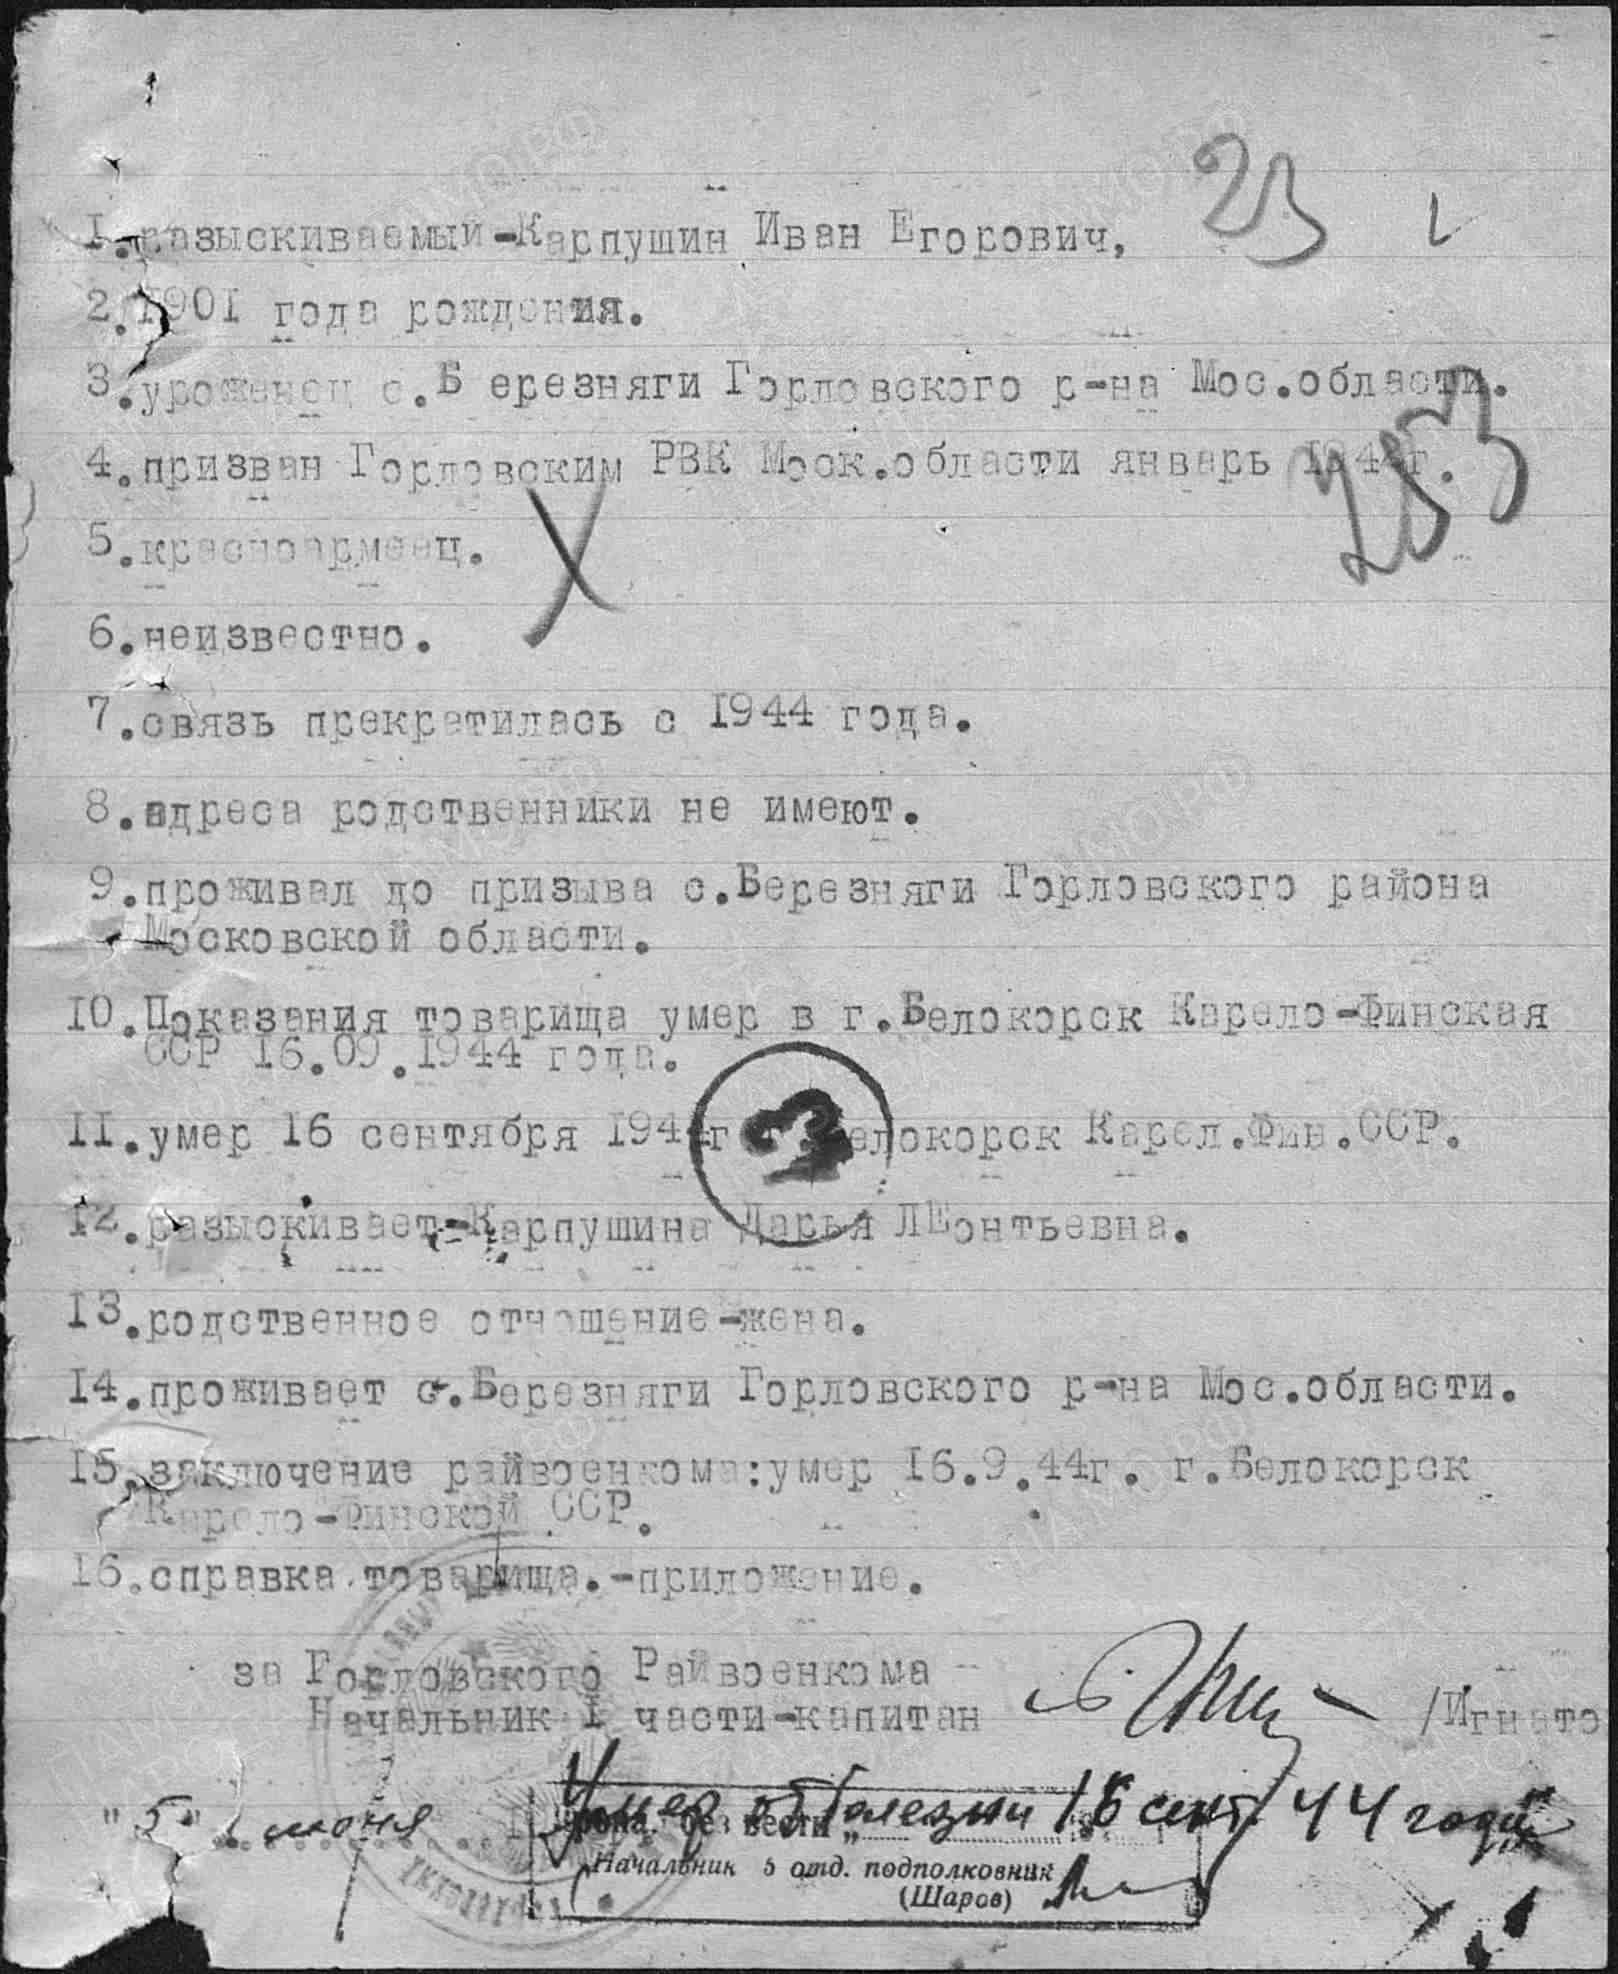 23
1.разыскиваемый-Карпушин Иван Егорович,
2.1901 года рождения.
3.уроженец с.Б ерезняги Горловского р-на Мос.области.
4.призван Горловским РВК Моск.области январь
253
5.красноармеец.
6.неизвестно.
7.связь прекратилась с 1944 года.
8.адреса родственники не имеют.
9.проживал до призыва с.Березняги Горловского района
Московской области.
10.Показания товарища умер в г.Белокорск Карело-Финская
ССР 16.09.1944 года.
3
11.умер 16 сентября 1944г елокорск Карел.Фин.ССР.
12.разыскивает-Карпушина Дарья ЛЕонтьевна.
13.родственное отношение-жена.
14.проживает с.Березняги Горловского р-на Мос.области.
15.заключение райвоенкома:умер 16.9.44г. г.Белокорск
Карело-Финской ССР.
16.справка товарища.-приложение.
за Горловского Райвоенкома
Начальник I части-капитан /Игнато
"5" июня
Умер от болезни 16 сент 44 года
без вести
Начальник 5 отд. подполковник
(Шаров)